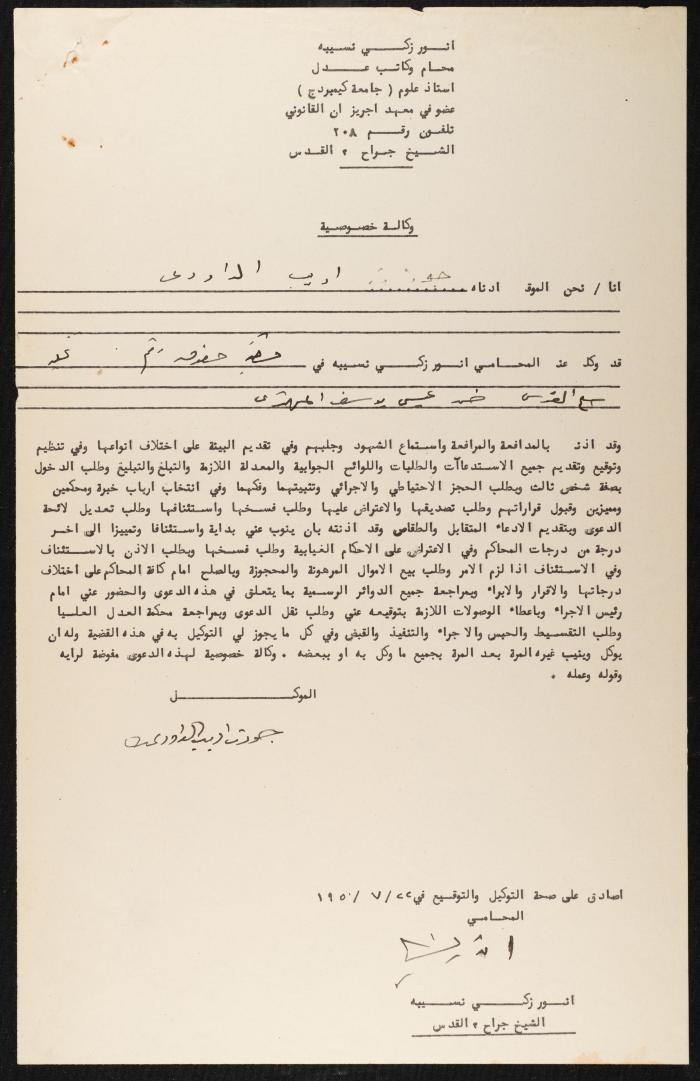 انور زكي نسيبه
محام وكاتب عدل
استاذ علوم ( جامعة كيمبردج )
عضو في معهد اجريز ان القانوني
تلفون رقم ٢٠٨
الشيخ جراح ، القدس
وكالة خصوصية
انا / نحن الموقع ادناه جودت اديب الداودي
قد وكلت عند المحامي انور زكي نسيبه في قضية حقوق رقم
القدس ضد عيسى يوسف
وقد اذنت بالمدافعة والمرافعة واستماع الشهود وجلبهم وفي تقديم البينة على اختلاف انواعها وفي تنظيم
وتوقيع وتقديم جميع الاستدعاآت والطلبات واللوائح الجوابية والمعدلة اللازمة والتبلغ والتبليغ وطلب الدخول
بصفة شخص ثالث وبطلب الحجز الاحتياطي والاجرائي وتثبيتهما وفكهما وفي انتخاب ارباب خبرة ومحكمين
ومميزين وقبول قراراتهم وطلب تصديقها والاعتراض عليها وطلب فسخها واستئنافها وطلب تعديل لائحة
الدعوى وبتقديم الادعاء المتقابل والطقاص وقد اذنته بان ينوب عني بداية واستئنافا وتمييزا الى اخر
درجة من درجات المحاكم وفي الاعتراض على الاحكام الغيابية وطلب فسخها وبطلب الاذن بالاستئناف
وفي الاستئناف اذا لزم الامر وطلب بيع الاموال المرهونة والمحجوزة وبالصلح امام كافة المحاكم على اختلاف
درجاتها والاقرار والابراء وبمراجعة جميع الدوائر الرسمية بما يتعلق في هذه الدعوى والحضور عني امام
رئيس الاجراء وباعطاء الوصولات اللازمة بتوقيعه عني وطلب نقل الدعوى وبمراجعة محكمة العدل العلسيا
وطلب التقسيط والحبس والاجراء والتنفيذ والقبض وفي كل ما يجوز لي التوكيل به في هذه القضية وله ان
يوكل وينيب غيره المرة بعد المرة بجميع ما وكل به او ببعضه . وكالة خصوصية لهذه الدعوى مفوضة لرايه
وقوله وعمله .
الموكل
جودت اديب الداودي
اصادق على صحة التوكيل والتوقيع في ٢٢ / ٧ / ١٩٥٠
المحامي
انور زكي نسيبه
الشيخ جراح ، القدس